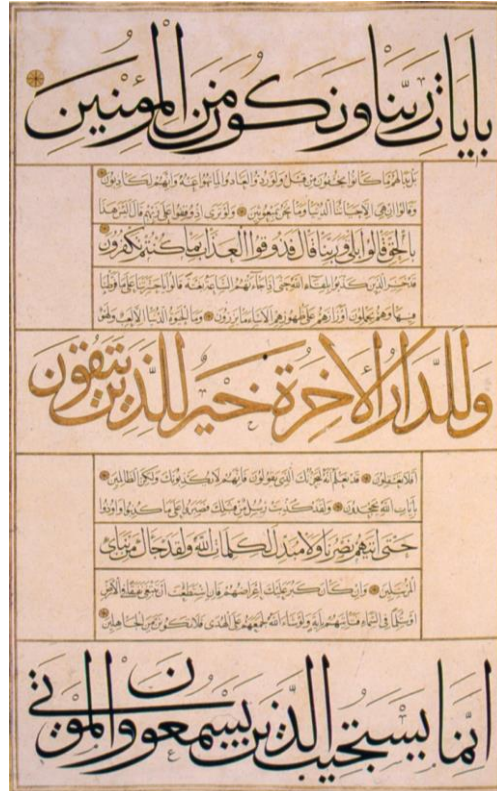 بايات ربنا ونكون من المؤمنين
بل بدا لهم ما كانوا يخفون من قبل ولو ردوا لعادوا لما نهوا عنه وانهم لكاذبون
وقالوا ان هي الا حياتنا الدنيا وما نحن بمبعوثين ولو ترى اذ وقفوا على ربهم قال اليس هذا
بالحق قالوا بلى وربنا قال فذوقوا العذاب بما كنتم تكفرون
قد خسر الذين كذبوا بلقاء الله حتى اذا جاءتهم الساعة بغتة قالوا يا حسرتنا على ما فرطنا
فيها وهم يحملون اوزارهم على ظهورهم الا ساء ما يزرون وما الحيوة الدنيا الا لعب ولهو
وللدار الاخرة خير للذين يتقون
افلا تعقلون قد نعلم انه ليحزنك الذي يقولون فانهم لا يكذبونك ولكن الظالمين
بايات الله يجحدون ولقد كذبت رسل من قبلك فصبروا على ما كذبوا واوذوا
حتى اتيهم نصرنا ولا مبدل لكلمات الله ولقد جاءك من نبائ
المرسلين وان كان كبر عليك اعراضهم فان استطعت ان تبتغي نفقا في الارض
او سلما في السماء فتاتيهم باية ولو شاء الله لجمعهم على الهدى فلا تكونن من الجاهلين
انما يستجيب الذين يسمعون والموتى